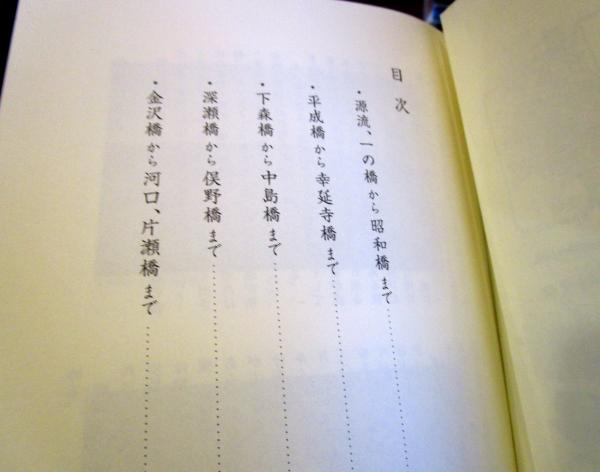 目次
・源流、一の橋から昭和橋まで……………
・平成橋から幸延寺橋まで……………
・下森橋から中島橋まで……………
・深瀬橋から俣野橋まで……………
・金沢橋から河口、片瀬橋まで……………